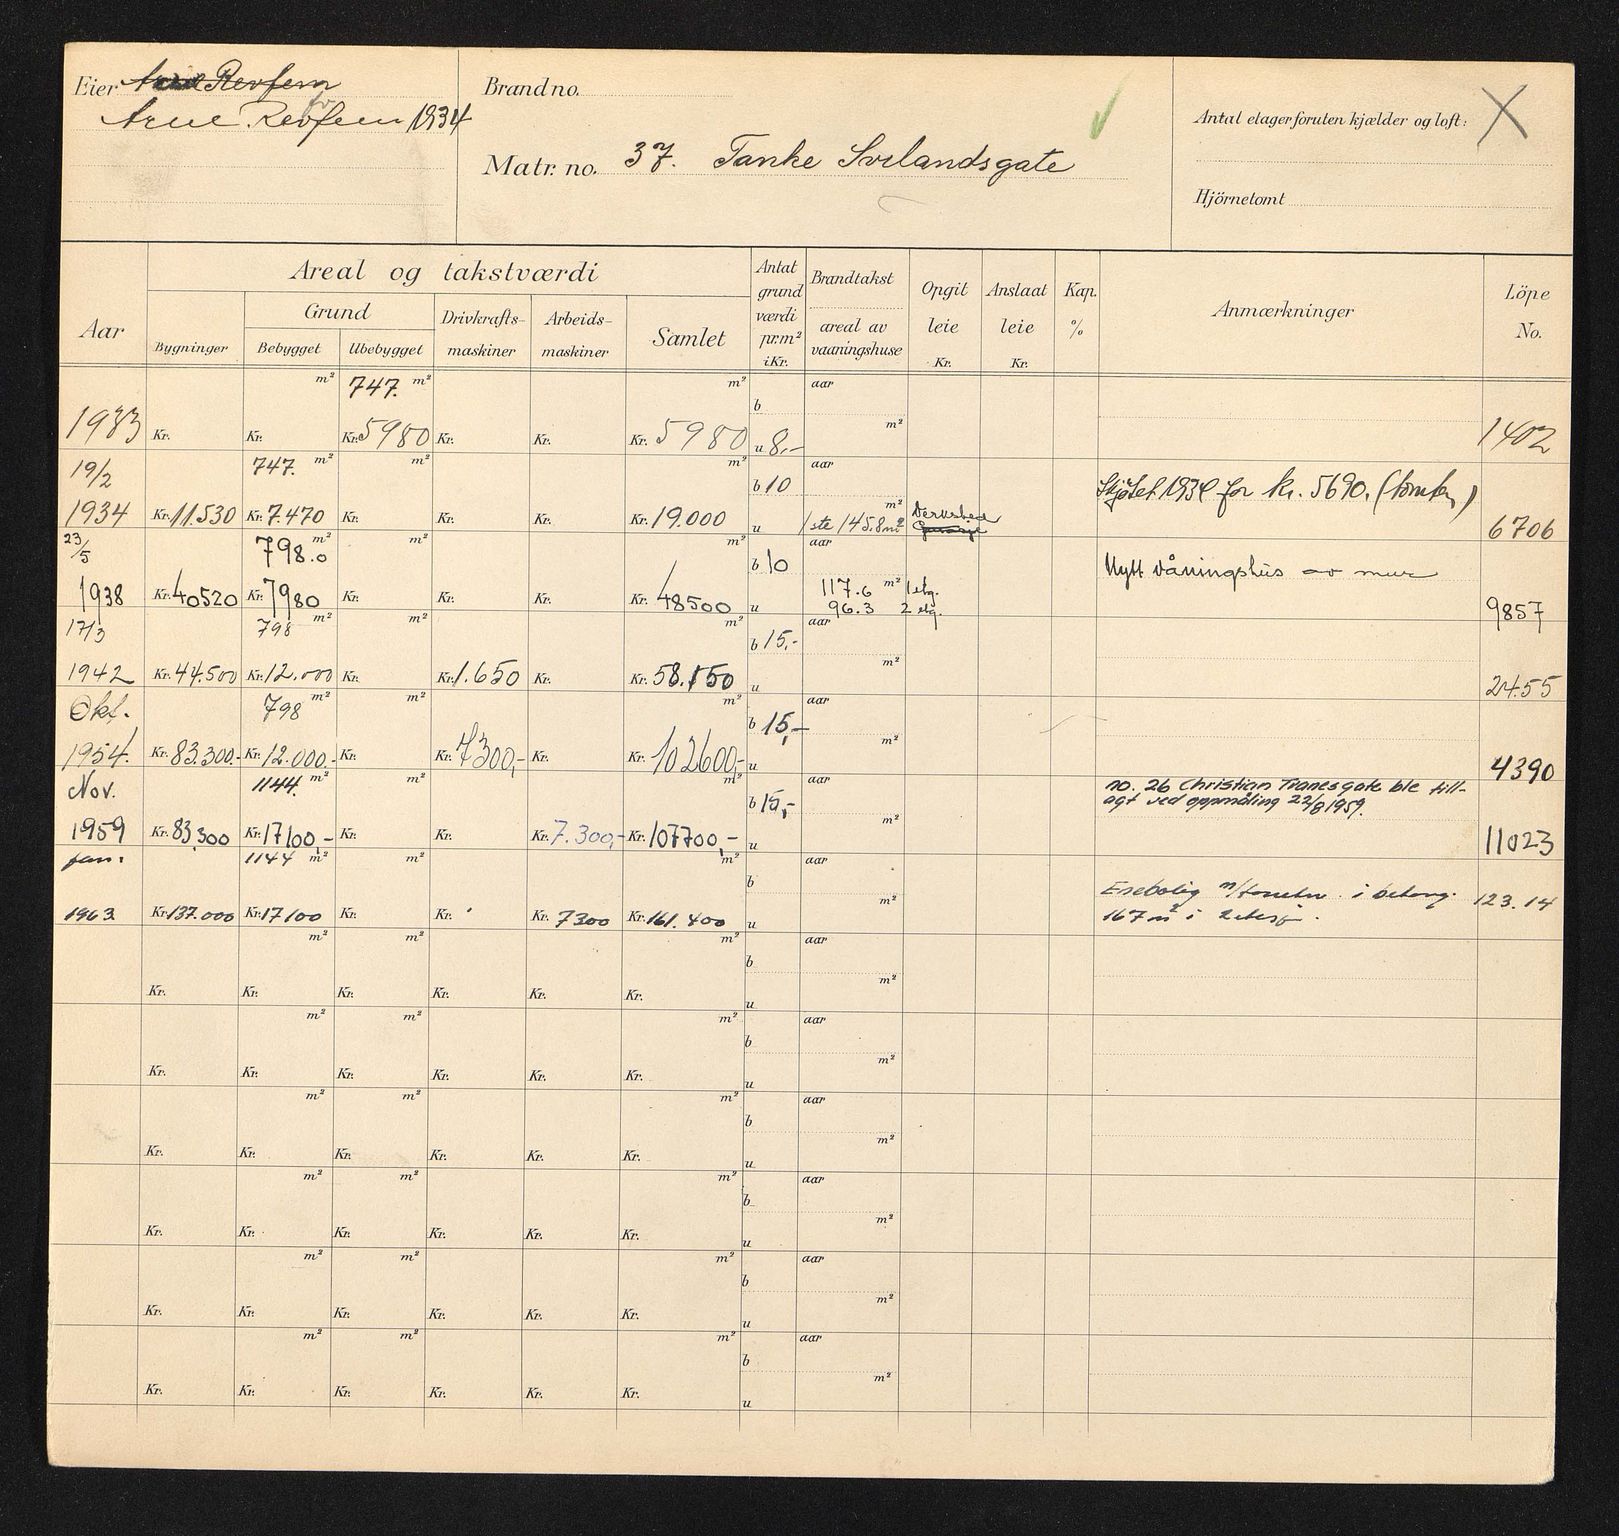 Eier Arne Revfem
Arne Revfem 1934
Brand no.
Matr. no. 37. Tanke Svilandsgate
Antal etager foruten kjælder og loft: X
Hjörnetomt
Aar
Areal og takstværdi
Bygninger
Grund
Bebygget Ubebygget
Drivkrafts-
maskiner
Arbeids-
maskiner
Samlet
Antat
grund
værdi
pr.m²
i Kr.
Brandtakst
areal av
vaaningshuse
Opgit
leie
Kr.
Anslaat
leie
Kr.
Kap.
%
Anmærkninger
Löpe
No.
m² 747. m² m² aar
b
m²
1933 Kr. Kr. Kr. 5980 Kr. Kr. Kr. 5980 u 8,- 1402
19/2 747. m² m² m² aar
b 10 Skjötet 1934 for kr. 5690. (tomten)
m²
1934 Kr. 11.530 Kr. 7.470 Kr. Kr. Kr. Kr. 19.000 u 1ste 145.8m² Verksted 6706
Garasje
23/5 798.0 m² m² m² aar
b 10 Nytt våningshus av mur
117.6 m² 1 etg.
1938 Kr. 40520 Kr. 7980 Kr. Kr. Kr. Kr. 48500 u 96.3 2 etg. 9857
17/3 798 m² m² m² aar
b 15,-
m²
1942 Kr. 44.500 Kr. 12.000 Kr. Kr. 1.650 Kr. Kr. 58.150 u 2455
Okt. 798 m² m² m² aar
b 15,-
m²
1954. Kr. 83.300.- Kr. 12.000.- Kr. Kr. 7300,- Kr. Kr. 102600,- u 4390
Nov. 1144. m² m² m² aar no. 26 Christian Tranesgate ble till-
b 15,- agt ved oppmåling 22/8 1959.
m²
1959 Kr. 83.300 Kr. 17100,- Kr. Kr. Kr. 7.300,- Kr. 107700,- u 11023
Jan. 1144 m² m² m² aar
b Enebolig m/ i betong.
m²
1963 Kr. 137.000 Kr. 17100 Kr. Kr. Kr. 7300 Kr. 161.400 u 167 m² i 2 etasj. 123.14
m² m² m² aar
b
m²
Kr. Kr. Kr. Kr. Kr. Kr. u
m² m² m² aar
b
m²
Kr. Kr. Kr. Kr. Kr. Kr. u
m² m² m² aar
b
m²
Kr. Kr. Kr. Kr. Kr. Kr. u
m² m² m² aar
b
m²
Kr. Kr. Kr. Kr. Kr. Kr. u
m² m² m² aar
b
m²
Kr. Kr. Kr. Kr. Kr. Kr. u
m² m² m² aar
b
m²
Kr. Kr. Kr. Kr. Kr. Kr. u